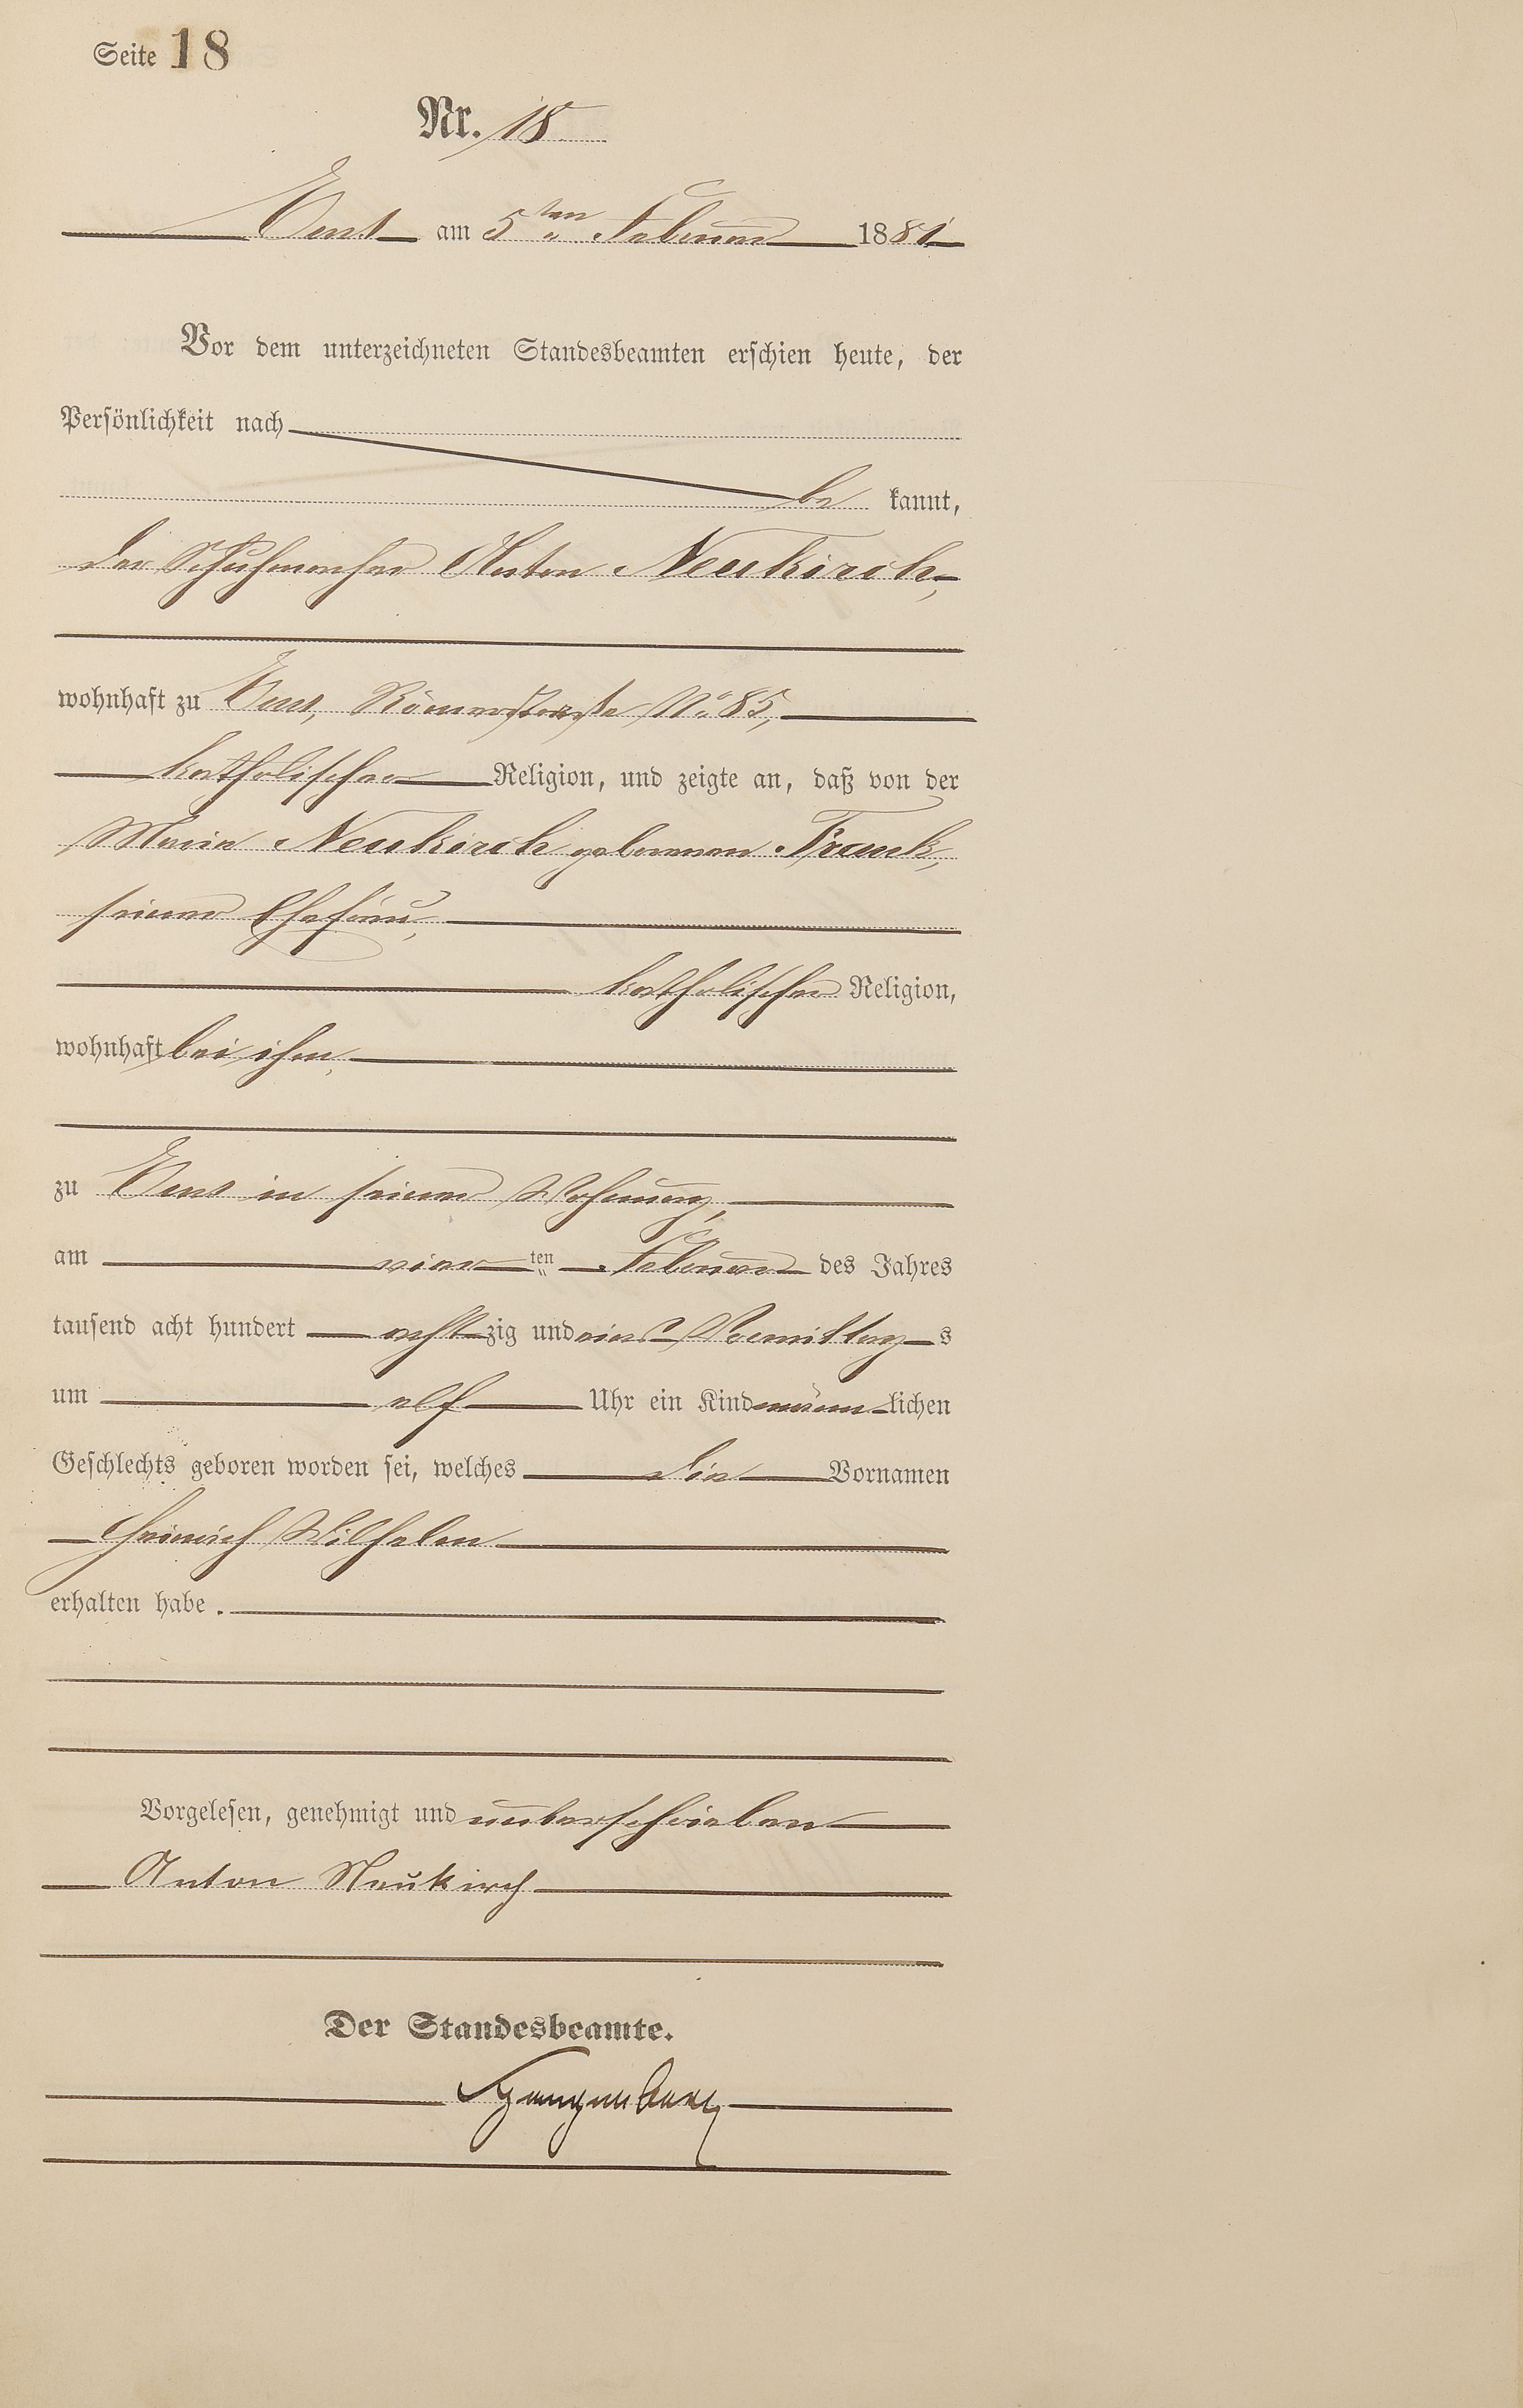 Seite 18
Nr. 18
Ems am 5ten Februar 1881
Vor dem unterzeichneten Standesbeamten erschien heute, der
Persönlichkeit nach
be kannt,
der Schuhmacher Anton Neukirch,
wohnhaft zu Ems, Römerstraße No 85,
katholischer Religion, und zeigte an, daß von der
Maria Neukirch geborenen Frank,
seiner Ehefrau,
katholischer Religion,
wohnhaft bei ihm,
zu Ems in seiner Wohnung,
am vier ten Februar des Jahres
tausend acht hundert acht zig und eins Vormittag s
um elf Uhr ein Kind männ lichen
Geschlechts geboren worden sei, welches die Vornamen
Heinrich Wilhelm
erhalten habe.
Vorgelesen, genehmigt und unterschrieben
Anton Neukirch
Der Standesbeamte.
Spangenberg